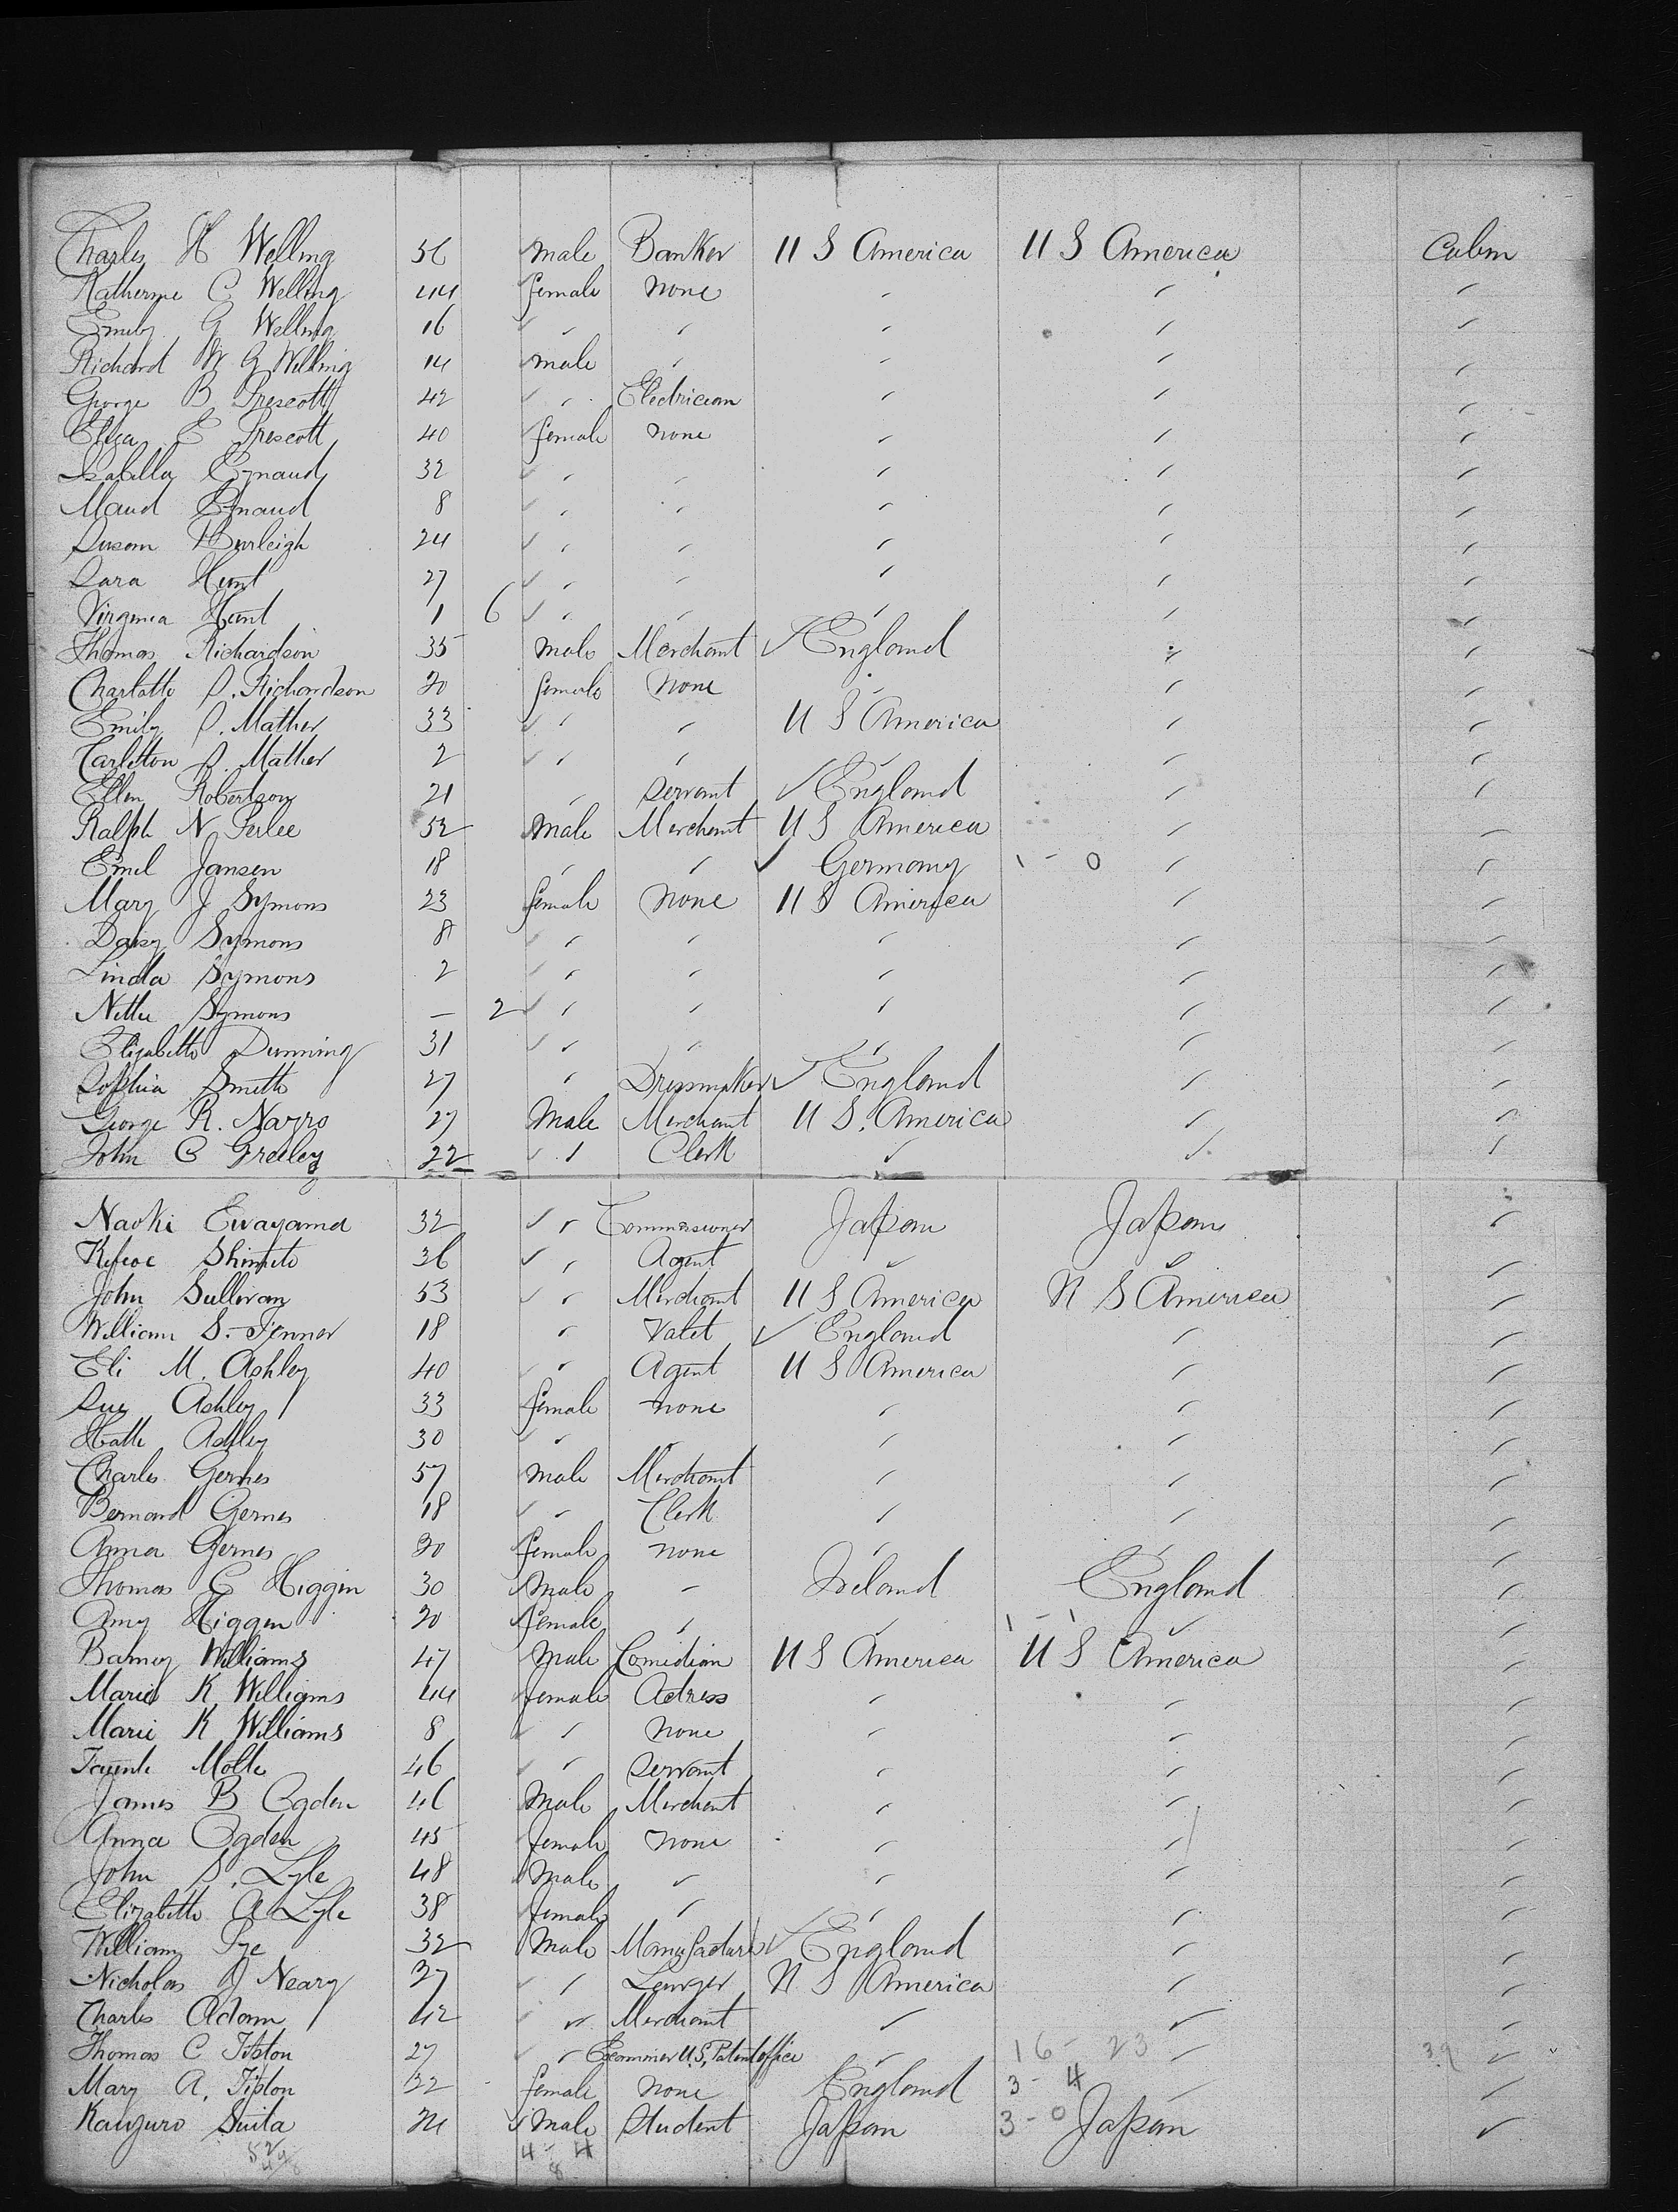 Charles H Welling 56 male Banker U S America U S America Cabin
Katherine C Welling 44 female none " " "
Emily G Welling 16 " " " " "
Richard W G Welling 14 male " " " "
George B Prescott 42 " Electrician " " "
Eliza E Prescott 40 female none " " "
Isabella 32 " " " " "
Maud 8 " " " " "
Susan Burleigh 24 " " " " "
Sara Hunt 27 " " " " "
Virginia Hunt 1 6 " " " " "
Thomas Richardson 35 male Merchant England " "
Charlotte S. Richardson 20 female none " " "
Emily S. Mather 33 " " U S America " "
Carlitton S. Mather 2 " " " " "
Ellen Robertson 21 " Servant England " "
Ralph N Perlee 52 male Merchant U S America " "
Emil Jansen 18 " " Germany 1 - 0 " "
Mary J Symons 23 female none U S America " "
Daisy Symons 8 " " " " "
Linda Symons 2 " " " " "
Nettie Symons - 2 " " " " "
Elizabeth Dunning 31 " " " " "
Sophia Smith 27 " Dressmaker England " "
George R. Nazro 27 Male Merchant U S. America " "
John C Greeley 22 " Clerk " " "
Naoki Ewayama 32 " Commissioner Japan Japan "
Shimito 36 " Agent " " "
John Sullivan 53 " Merchant U S America U S America "
William S. Jenner 18 " Valet England " "
Eli M. Ashley 40 " Agent U S America " "
Sue Ashley 33 female none " " "
Hatte Ashley 30 " " " " "
Charles Gernes 57 male Merchant " " "
Bernard Gernes 18 " Clerk " " "
Anna Gernes 20 female none " " "
Thomas C Higgin 30 Male - Ireland England "
Amy Higgin 20 female " " 1 - 1 " "
Barney Williams 47 Male Comedian U S America U S America "
Maria K Williams 44 female Actress " " "
Marie K Williams 8 " none " " "
Molte 46 " Servant " " "
James B Ogden 46 Male Merchant " " "
Anna Ogden 45 female none " " "
John S. Lyle 48 Male " " " "
Elizabeth A Lyle 38 female " " " "
William Pye 32 Male Manufacturer England " "
Nicholas J Neary 27 " Lawyer U S America " "
Charles Adams 42 " Merchant " " "
Thomas C Tipton 27 " Examiner U.S. Patent office " 16 - 23 " 39 "
Mary A. Tipton 22 female none England 3 - 4 " "
Kanzuro Suita 24 Male Student Japan 3 - 0 Japan "
4 - 4
8